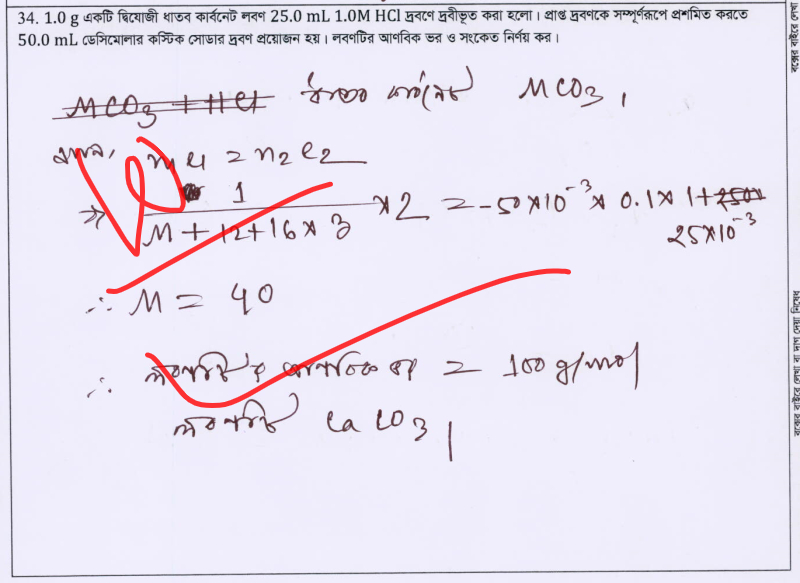 34. 1.0 g একটি দ্বিযোজী ধাতব কার্বনেট লবণ 25.0 mL 1.0M HCl দ্রবণে দ্রবীভূত করা হলো। প্রাপ্ত দ্রবণকে সম্পূর্ণরূপে প্রশমিত করতে
50.0 mL ডেসিমোলার কস্টিক সোডার দ্রবণ প্রয়োজন হয়। লবণটির আণবিক ভর ও সংকেত নির্ণয় কর।
MCO3 + HCl ধাতব কার্বনেট MCO3,
e1 = n2e2
⇒ 1 / M + 12 + 16 × 3 × 2 = -50×10^-3 × 0.1 × 1 +
25×10^-3
∴ M = 40
∴ লবণটির আণবিক ভর = 100 g/mol
লবণটি CaCO3
বক্সের বাইরে লেখা বা দাগ দেয়া নিষেধ
বক্সের বাইরে লেখা